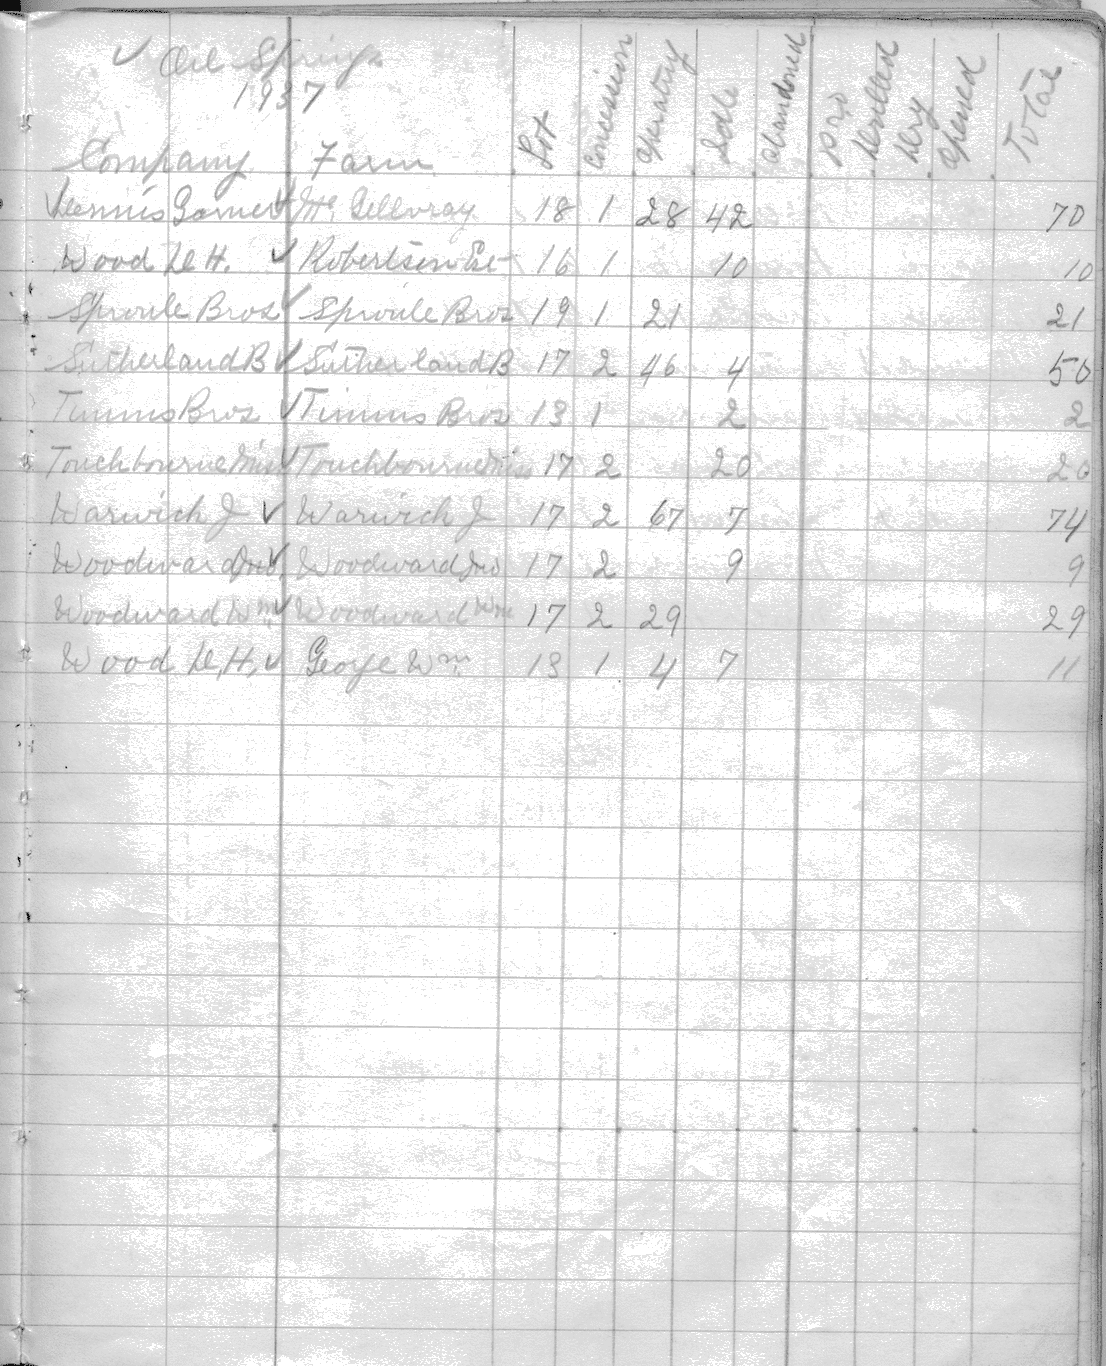 ✓ Oil Springs
1937
Company Farm Lot Concession Operating Idle Abandoned Pro Drilled Dry Opened Total
✓ Dennis Garnet ✓ Mc Gillvray 18 1 28 42 70
Wood D H. ✓ Robertson Est 16 1 10 10
Sproule Bros ✓ Sproule Bros 19 1 21 21
Sutherland B ✓ Sutherland B 17 2 46 4 50
Timms Bros ✓ Timms Bros 13 1 2 2
Touchbourne ✓ Touchbourne 17 2 20 20
Warwick J ✓ Warwick J 17 2 67 7 74
Woodward Jno. ✓ Woodward Jno 17 2 9 9
Woodward Wm ✓ Woodward Wm 17 2 29 29
Wood D, H, ✓ George Wm 13 1 4 7 11